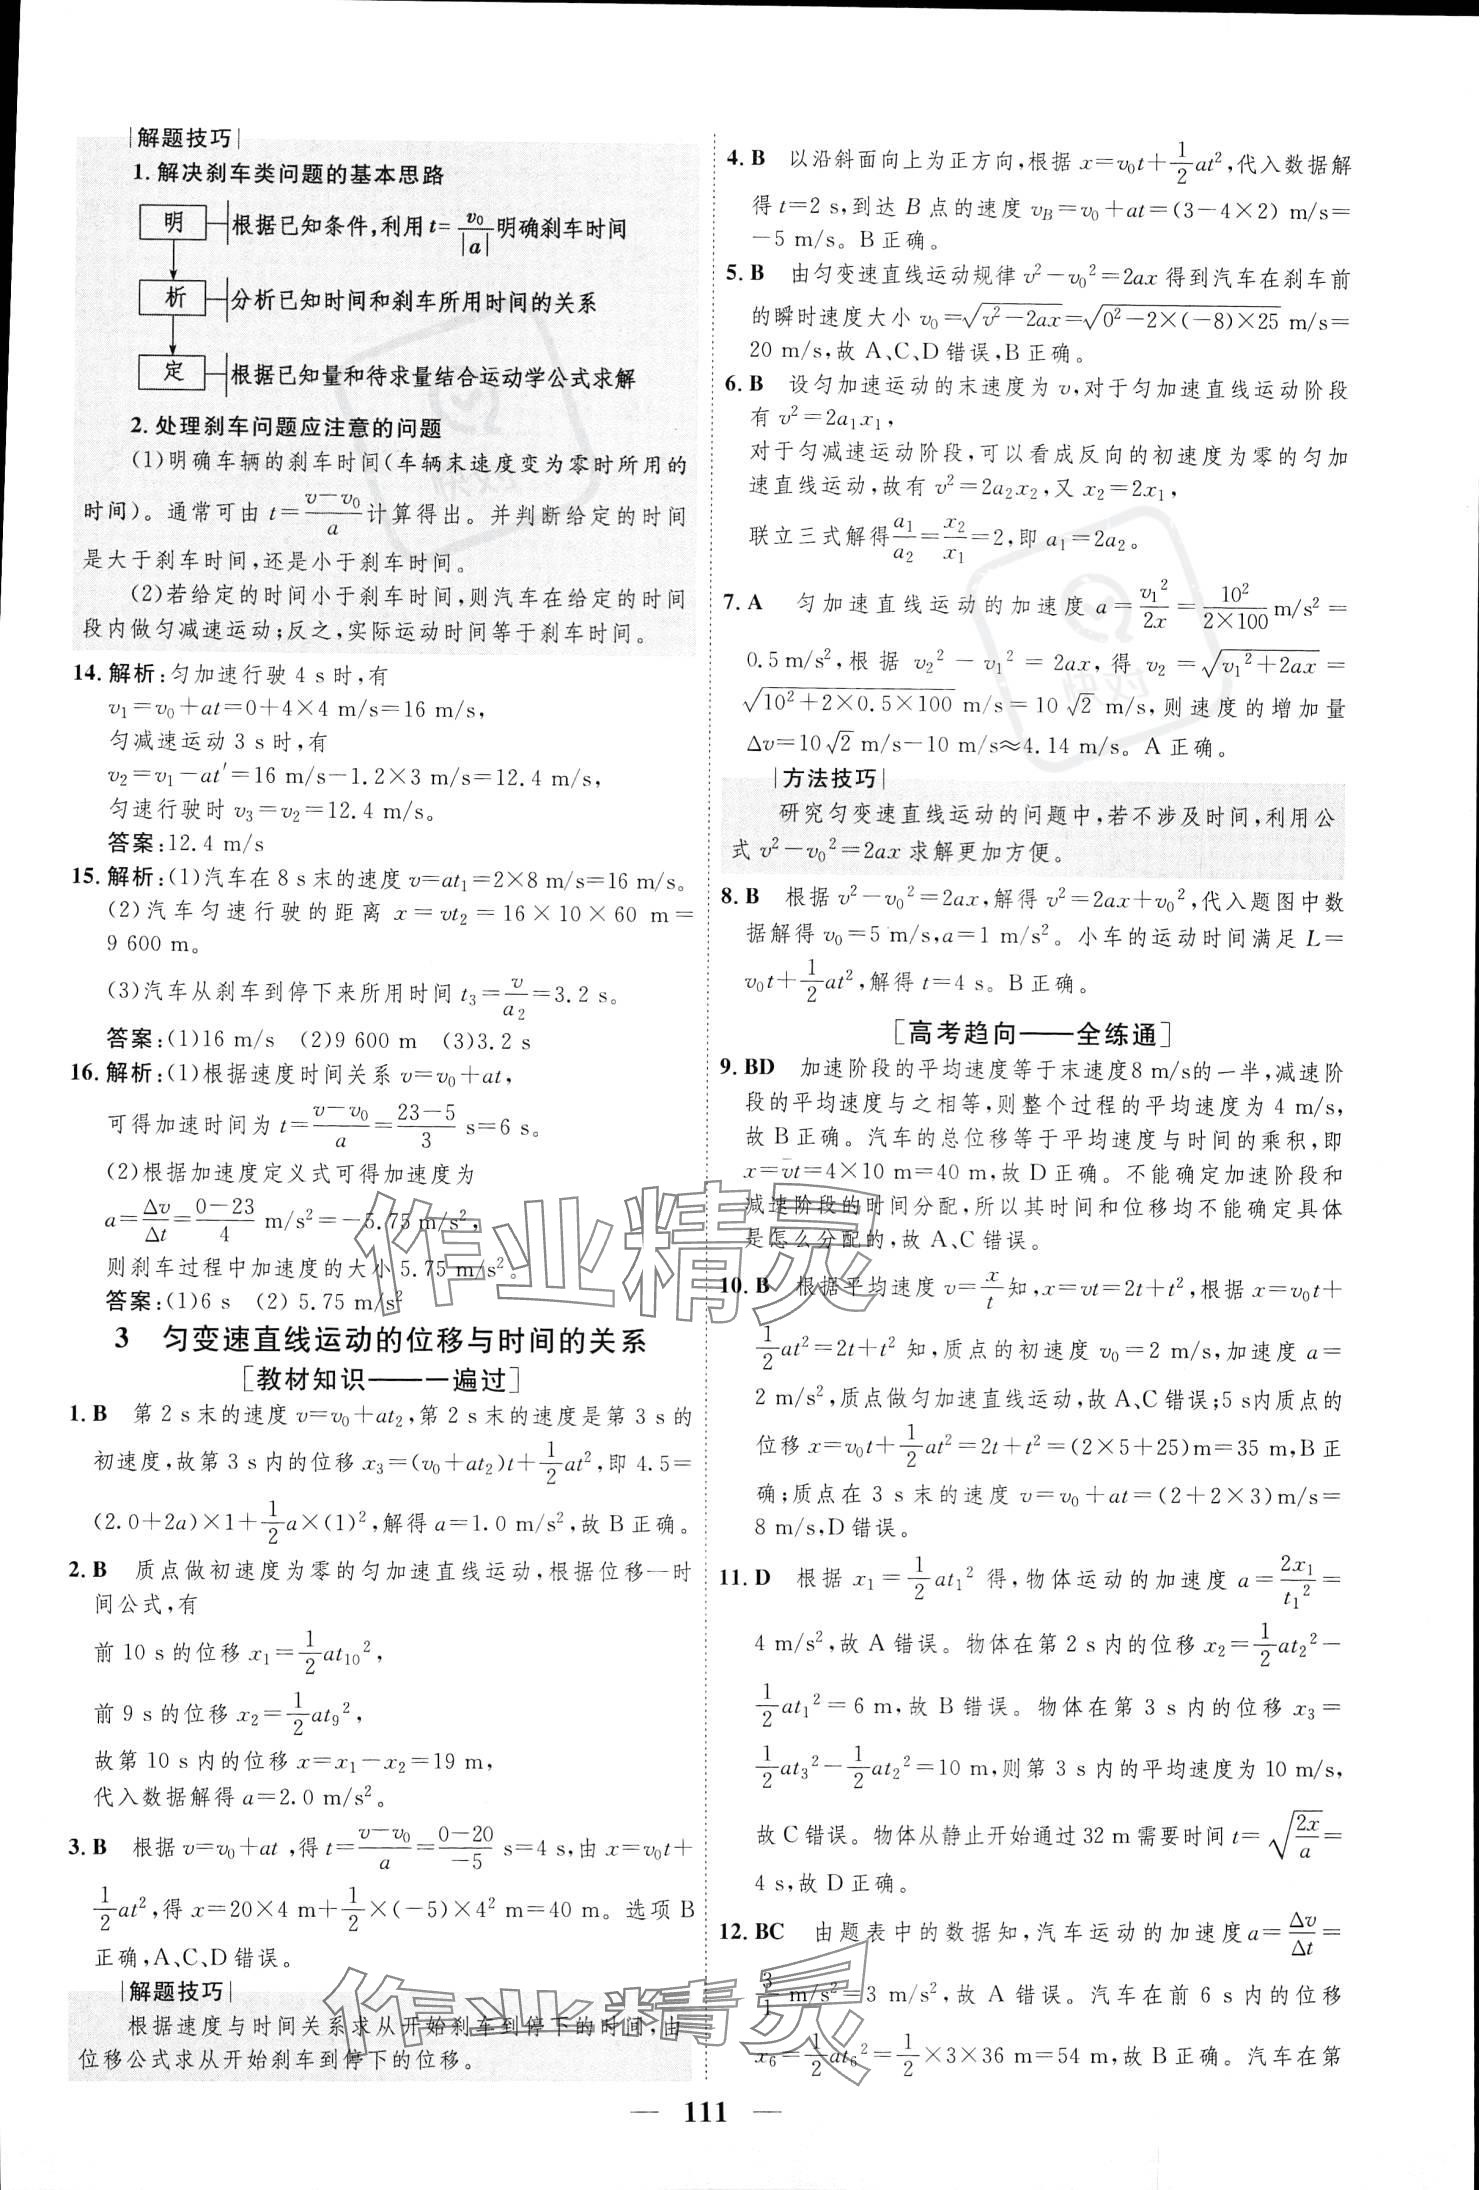 |解题技巧|
1. 解决刹车类问题的基本思路
明 根据已知条件,利用t=v₀/|a|明确刹车时间
析 分析已知时间和刹车所用时间的关系
定 根据已知量和待求量结合运动学公式求解
2. 处理刹车问题应注意的问题
(1)明确车辆的刹车时间(车辆末速度变为零时所用的
时间)。通常可由 t=(v-v₀)/a 计算得出。并判断给定的时间
是大于刹车时间,还是小于刹车时间。
(2)若给定的时间小于刹车时间,则汽车在给定的时间
段内做匀减速运动;反之,实际运动时间等于刹车时间。
14. 解析:匀加速行驶 4 s 时,有
v₁=v₀+at=0+4×4 m/s=16 m/s,
匀减速运动 3 s 时,有
v₂=v₁-at′=16 m/s-1.2×3 m/s=12.4 m/s,
匀速行驶时 v₃=v₂=12.4 m/s。
答案:12.4 m/s
15. 解析:(1)汽车在 8 s 末的速度 v=at₁=2×8 m/s=16 m/s。
(2)汽车匀速行驶的距离 x=vt₂=16×10×60 m=
9 600 m。
(3)汽车从刹车到停下来所用时间 t₃=v/a₂=3.2 s。
答案:(1)16 m/s (2)9 600 m (3)3.2 s
16. 解析:(1)根据速度时间关系 v=v₀+at,
可得加速时间为 t=(v-v₀)/a=(23-5)/3 s=6 s。
(2)根据加速度定义式可得加速度为
a=Δv/Δt=(0-23)/4 m/s²=-5.75 m/s²,
则刹车过程中加速度的大小 5.75 m/s²。
答案:(1)6 s (2) 5.75 m/s²
3 匀变速直线运动的位移与时间的关系
[教材知识——一遍过]
1. B 第 2 s 末的速度 v=v₀+at₂,第 2 s 末的速度是第 3 s 的
初速度,故第 3 s 内的位移 x₃=(v₀+at₂)t+1/2at²,即 4.5=
(2.0+2a)×1+1/2a×(1)²,解得 a=1.0 m/s²,故 B 正确。
2. B 质点做初速度为零的匀加速直线运动,根据位移一时
间公式,有
前 10 s 的位移 x₁=1/2at₁₀²,
前 9 s 的位移 x₂=1/2at₉²,
故第 10 s 内的位移 x=x₁-x₂=19 m,
代入数据解得 a=2.0 m/s²。
3. B 根据 v=v₀+at ,得 t=(v-v₀)/a=(0-20)/-5 s=4 s,由 x=v₀t+
1/2at²,得 x=20×4 m+1/2×(-5)×4² m=40 m。选项 B
正确,A、C、D 错误。
|解题技巧|
根据速度与时间关系求从开始刹车到停下的时间,由
位移公式求从开始刹车到停下的位移。
4. B 以沿斜面向上为正方向,根据 x=v₀t+1/2at²,代入数据解
得 t=2 s,到达 B 点的速度 v_B=v₀+at=(3-4×2) m/s=
-5 m/s。B 正确。
5. B 由匀变速直线运动规律 v²-v₀²=2ax 得到汽车在刹车前
的瞬时速度大小 v₀=√(v²-2ax)=√(0²-2×(-8)×25) m/s=
20 m/s,故 A、C、D 错误,B 正确。
6. B 设匀加速运动的末速度为 v,对于匀加速直线运动阶段
有 v²=2a₁x₁,
对于匀减速运动阶段,可以看成反向的初速度为零的匀加
速直线运动,故有 v²=2a₂x₂,又 x₂=2x₁,
联立三式解得a₁/a₂=x₂/x₁=2,即 a₁=2a₂。
7. A 匀加速直线运动的加速度 a=v₁²/2x=10²/(2×100) m/s²=
0.5 m/s²,根据 v₂²-v₁²=2ax,得 v₂=√(v₁²+2ax)=
√(10²+2×0.5×100) m/s=10√2 m/s,则速度的增加量
Δv=10√2 m/s-10 m/s≈4.14 m/s。A 正确。
|方法技巧|
研究匀变速直线运动的问题中,若不涉及时间,利用公
式 v²-v₀²=2ax 求解更加方便。
8. B 根据 v²-v₀²=2ax,解得 v²=2ax+v₀²,代入题图中数
据解得 v₀=5 m/s,a=1 m/s²。小车的运动时间满足 L=
v₀t+1/2at²,解得 t=4 s。B 正确。
[高考趋向——全练通]
9. BD 加速阶段的平均速度等于末速度8 m/s的一半,减速阶
段的平均速度与之相等,则整个过程的平均速度为 4 m/s,
故 B 正确。汽车的总位移等于平均速度与时间的乘积,即
x=v̄t=4×10 m=40 m,故 D 正确。不能确定加速阶段和
减速阶段的时间分配,所以其时间和位移均不能确定具体
是怎么分配的,故 A、C 错误。
10. B 根据平均速度 v=x/t知,x=vt=2t+t²,根据 x=v₀t+
1/2at²=2t+t² 知,质点的初速度 v₀=2 m/s,加速度 a=
2 m/s²,质点做匀加速直线运动,故 A、C 错误;5 s内质点的
位移 x=v₀t+1/2at²=2t+t²=(2×5+25)m=35 m,B 正
确;质点在 3 s 末的速度 v=v₀+at=(2+2×3)m/s=
8 m/s,D 错误。
11. D 根据 x₁=1/2at₁² 得,物体运动的加速度 a=2x₁/t₁²=
4 m/s²,故 A 错误。物体在第 2 s 内的位移 x₂=1/2at₂²-
1/2at₁²=6 m,故 B 错误。物体在第 3 s 内的位移 x₃=
1/2at₃²-1/2at₂²=10 m,则第 3 s 内的平均速度为 10 m/s,
故 C 错误。物体从静止开始通过 32 m 需要时间 t=√(2x/a)=
4 s,故 D 正确。
12. BC 由题表中的数据知,汽车运动的加速度a=Δv/Δt=
3/1 m/s²=3 m/s²,故 A 错误。汽车在前 6 s 内的位移
x₆=1/2at₆²=1/2×3×36 m=54 m,故 B 正确。汽车在第
— 111 —
作业精灵
作业精灵
快对
快对